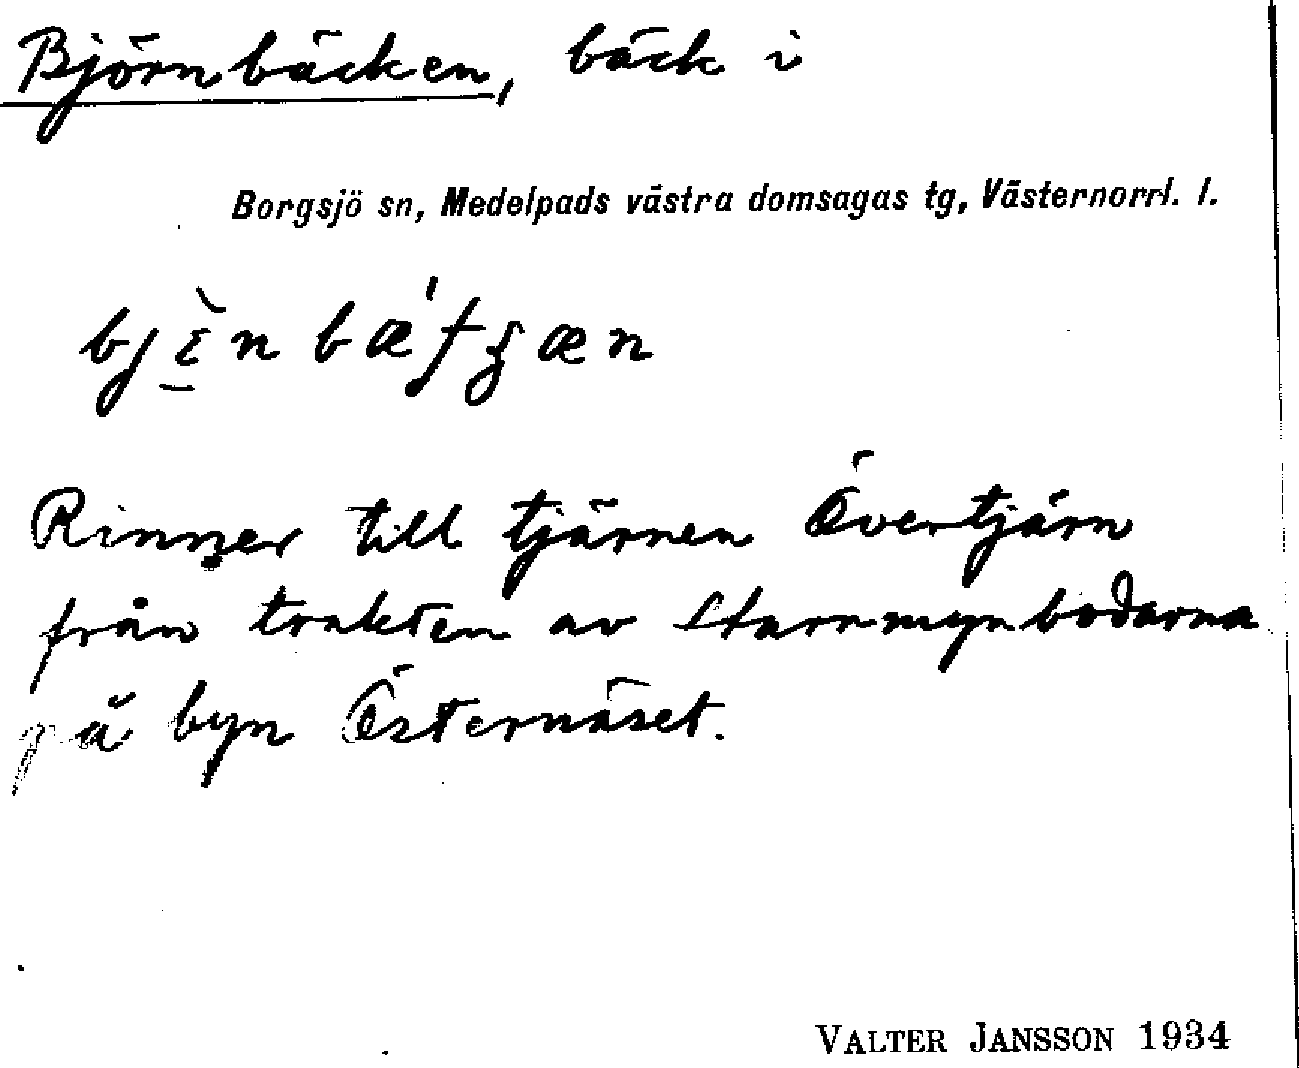 Björnbäcken, bäck i
Borgsjö sn, Medelpads västra domsagas tg, Västernorrl. l.
Rinner till tjärnen Övertjärn
från trakten av Starrmyrbodarna
på byn Östernäset.
VALTER JANSSON 1934